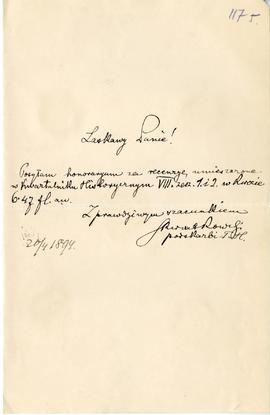 117 r.
Łaskawy Panie!
Posyłam honoraryum za recenzye, umieszczone
w Kwartalniku Historycznym VIII. zesz. 1. i 2. w kwocie
6·47 fl. aw.
Z prawdziwym szacunkiem
podskarbi T. H.
20/4 1894.